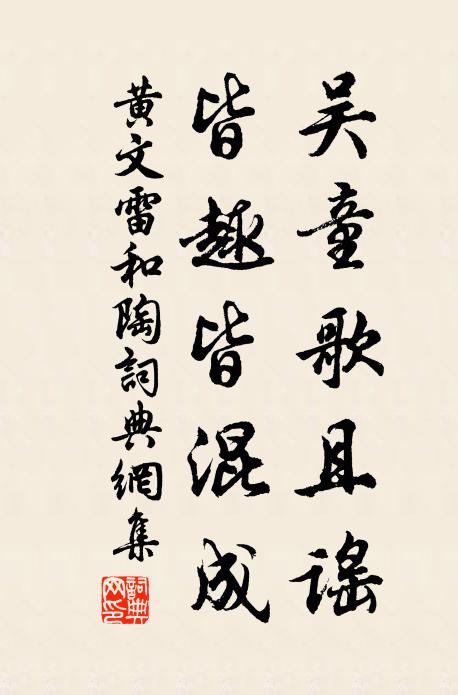 吴童歌且謡
皆趣皆混成
黄文雷和陶詞典網集
詞典網印